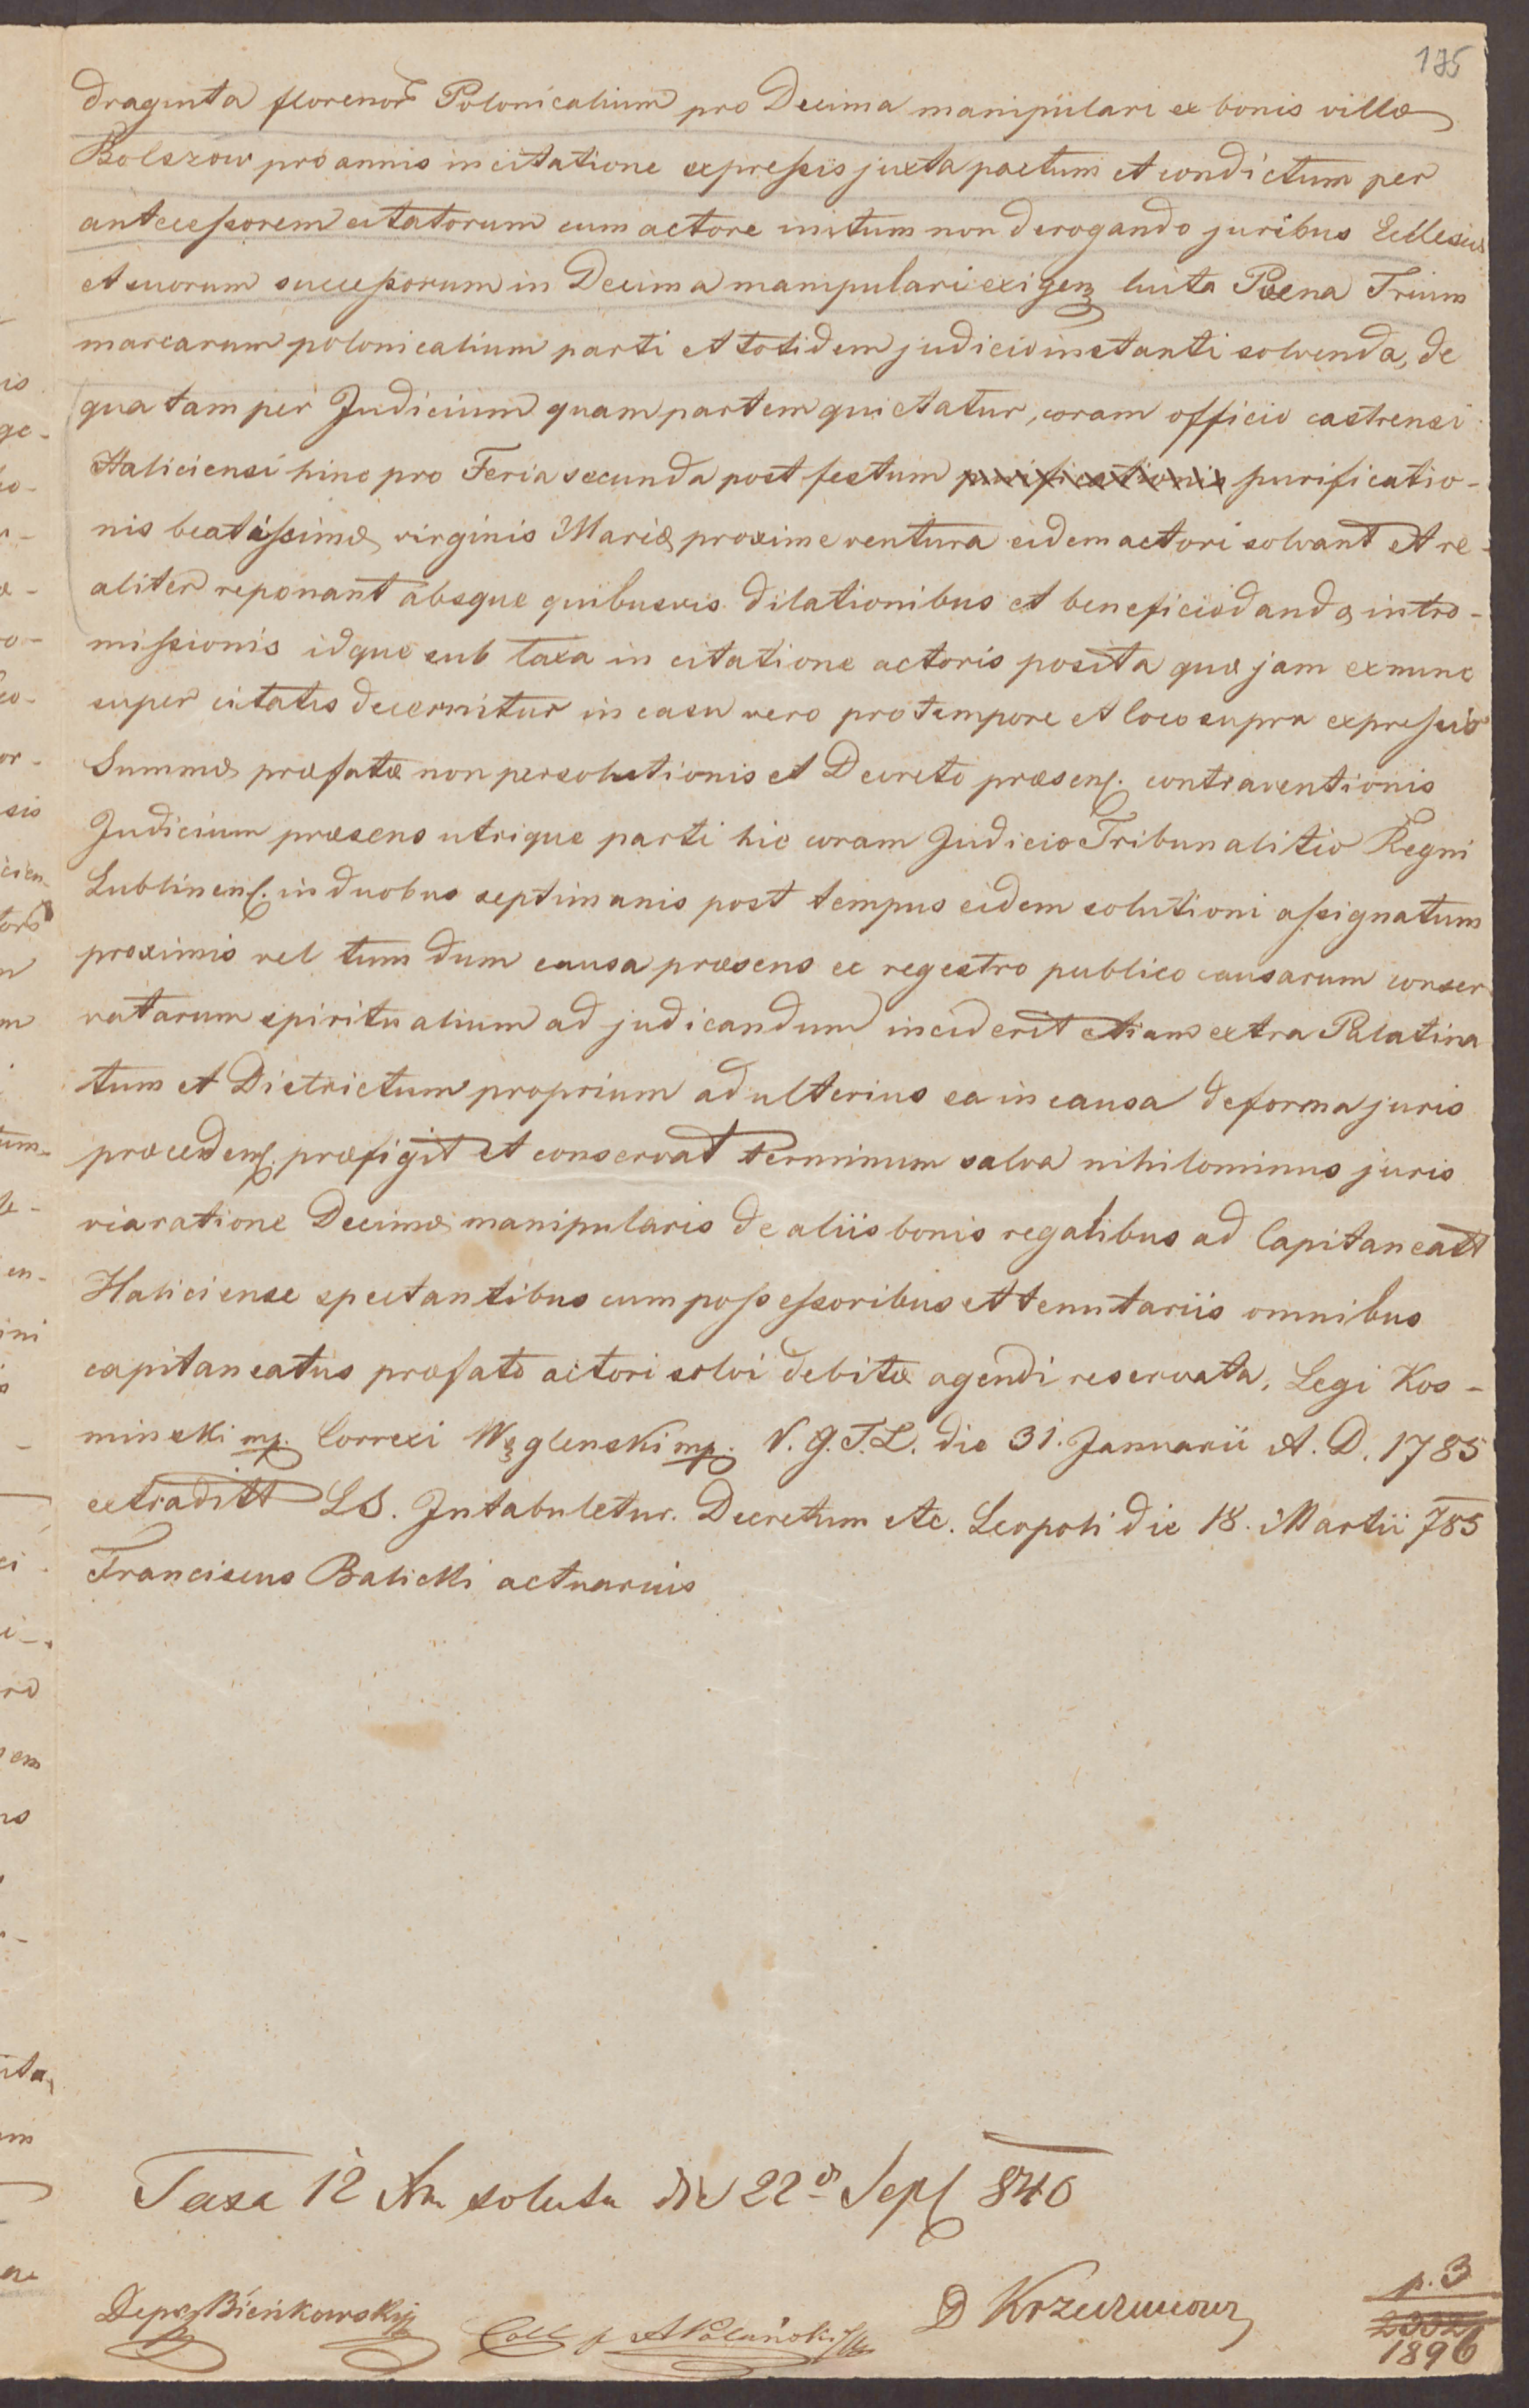 175
draginta florenor Polonicalium pro Decima manipulari ex bonis villæ
Bolszow pro annis in citatione expressis juxta pactum et condictum per
antecessorem citatorum cum actore initum non derogando juribus Ecclesiæ
et suorum successorum in Decima manipulari exigen luita Poena Trium
marcarum polonicalium parti et totidem judicio instanti solvenda, de
qua tam per Judicium quam partem quietatur, coram officio castrensi
Haliciensi hinc pro Feria secunda post festum purificationis purificatio-
nis beatissimæ virginis Mariæ proxime ventura eidem actori solvant et re-
aliter reponant absque quibusvis dilationibus et beneficio dandæ intro-
missionis idque sub taxa in citatione actoris posita quæ jam exnunc
super citatis decernitur in casu vero pro tempore et loco supra expressio
Summæ præfatæ non persolutionis et Decreto præsen. contraventionis
Judicium præsens utrique parti hic coram Judicio Tribunalitio Regni
Lublinen. in duobus septimanis post tempus eidem solutioni assignatum
proximis vel tum dum causa præsens ex regestro publico causarum conser
vatarum spiritualium ad judicandum inciderit etiam extra Palatina
tum et Districtum proprium ad ulterius ea in causa de forma juris
proceden. præfigit et conservat terminum salva nihilominus juris
via ratione Decimæ manipularis de aliis bonis regalibus ad Capitaneatt
Haliciense spectantibus cum possessoribus et tenutariis omnibus
capitaneatus præfato actori solvi debitæ agendi reservata. Legi Kos-
minski mp. Correxi Węglenski mp. V. G. T. L. die 31. Januarii A. D. 1785
extraditt LS. Intabuletur. Decretum etc. Leopoli die 18. Martii 785
Franciscus Balicki actuarius
Taxa 12 Xr soluta die 22 Sept 840
Deps Bieńkowski
Coll p
D
p. 3
2332
1896